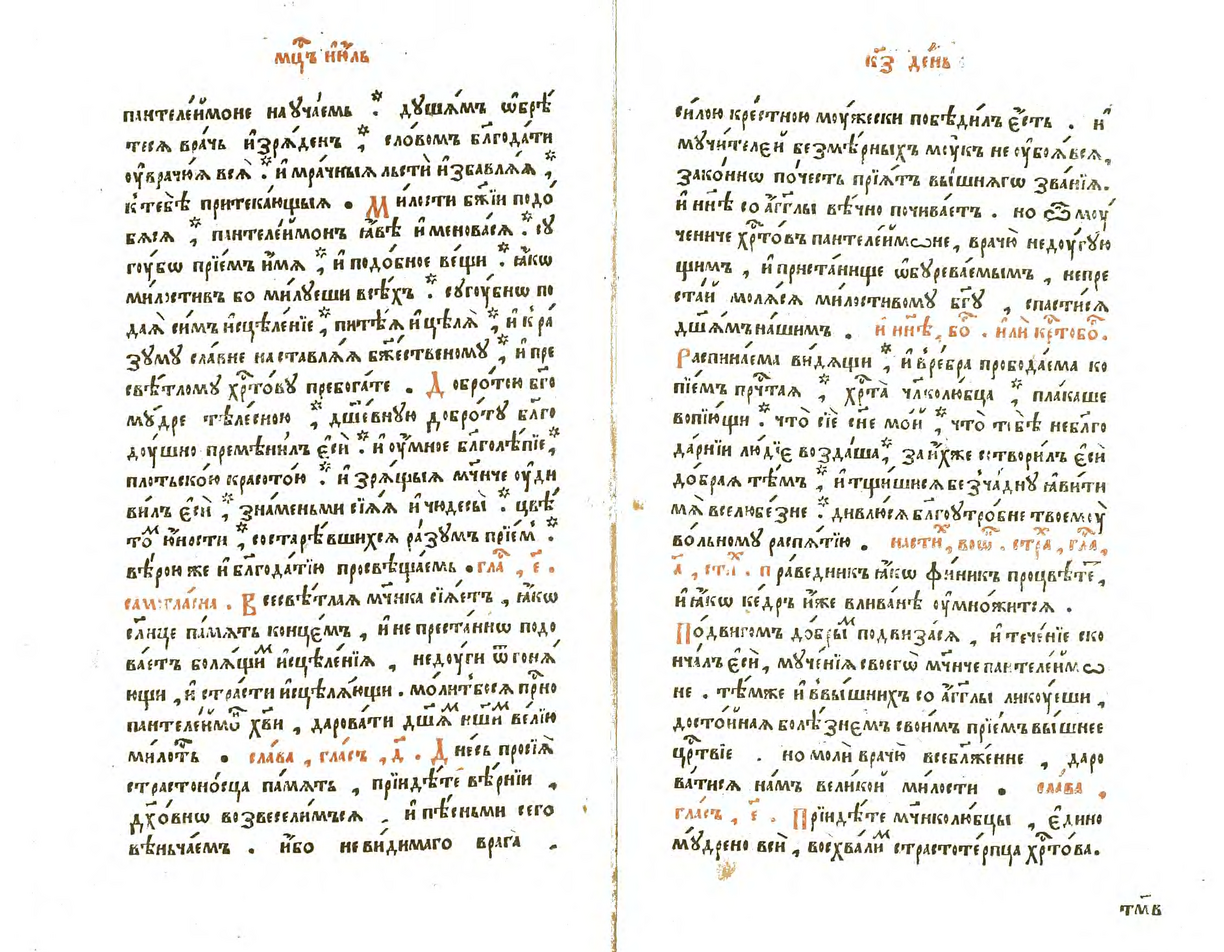 мцⷭ҇ъ і҆ю҆́ль
пантеле́и҆моне наꙋча́емь ⁘ дꙋша́мъ ѡ҆брѣ́
теся врачь и҆зря́денъ ⁘ сло́вомъ бл҃года́ти
оу҆врачю́я вся̀ ⁘ и҆ мра́чныя льстѝ и҆збавля́я ⁘
к тебѣ̀ притека́ющыя . Ми́лости бж҃їи подо́
бяся ⁘ пантеле́и҆монъ ꙗ҆́вѣ и҆менова́ся ⁘ сꙋ
гоу́бѡ прїе́мъ и҆́мя ⁘ и҆ подо́бное ве́щи ⁘ ꙗ҆́кѡ
ми́лостивъ бо ми́лꙋеши всѣ́хъ ⁘ сꙋгоу́бнѡ по
дая̀ си́мъ и҆сцѣле́нїе ⁘ пита́я и҆ цѣля̀ ⁘ и҆ к ра́
зꙋмꙋ сла́вне наставля́я бж҃е́ственомꙋ ⁘ и҆ пре
свѣ́тломꙋ хрⷭ҇то́вꙋ пребога́те . До́бро́тою бг҃о
мꙋ́дре тѣле́сною ⁘ дш҃е́внꙋю добро́тꙋ бл҃го
доу́шно премѣни́лъ є҆сѝ ⁘ и҆ оу҆́мное бл҃голѣ́пїе ⁘
пло́тьскою красото́ю ⁘ и҆ зря́щыя мч҃нче оу҆ди
ви́лъ є҆сѝ ⁘ зна́меньми сїя́я и҆ чюдесы̀ ⁘ цвѣ́
тоⷨ ю҆́ности ⁘ состарѣ́вшихся ра́зꙋмъ прїе́м ⁘
вѣ́рою же и҆ бл҃года́тїю просвѣща́емь . глаⷭ҇ , є҃ .
самогла́сна . Всесвѣ́тлая мч҃нка сїя́етъ , ꙗ҆́кѡ
сл҃нце па́мять конце́мъ , и҆ не преста́ннѡ подо
ва́етъ боля́щиⷨ и҆сцѣле́нїя , недоу́ги ѿгоня́
ющи , и҆ стра́сти и҆сцѣля́ющи . моли́твося при́сно
пантеле́и҆мо хв҃и , дарова́ти дш҃аⷨ на́шиⷨ ве́лїю
ми́лоⷭ҇ть . сла́ва , гла́съ , д҃ . Дне́сь просїя̀
страстоно́сца па́мять , прїиди́те вѣ́рнїи ,
дх҃о́внѡ возвесели́мъся , и҆ пѣ́сньми сего
вѣньча́емъ . и҆́бо неви́димаго врага̀ .
к҃з де́нь
си́лою кре́стною моу́жески побѣди́лъ є҆́сть . и҆
мꙋчи́телеи безмѣ́рныхъ моу́къ не оу҆боя́вся ,
зако́ннѡ по́честь прїя́тъ вы́шнягѡ зва́нїя .
и҆ нн҃ѣ со а҆́гг҃лы вѣ́чно почива́етъ . но ѽ моу́
чениче хрⷭ҇то́въ пантеле́и҆мѡне , врачю̀ недоу́гꙋю
щимъ , и҆ приста́нище ѡ҆бꙋрева́емымъ , непре
ста́й моля́ся ми́лостивомꙋ бг҃ꙋ , спасти́ся
дш҃а́мъ на́шимъ . и҆ нн҃ѣ , боⷢ҇ . и҆лѝ крⷭ҇тобоⷢ҇ .
Распина́ема ви́дящи ⁘ и҆ в ре́бра пробода́ема ко
пїе́мъ прⷱ҇тая ⁘ хрⷭ҇та̀ чл҃колю́бца ⁘ пла́каше
вопїю́щи ⁘ что̀ сїѐ сн҃е мо́й ⁘ что̀ тебѣ̀ небл҃го
да́рнїи лю́дїе возда́ша ⁘ за и҆́хже сотвори́лъ є҆сѝ
до́брая тѣ́мъ ⁘ и҆ тщи́шися безча́днꙋ ꙗ҆ви́ти
мѧ̀ вселюбе́зне ⁘ дивлю́ся бл҃гоꙋтро́бне твоемꙋ̀
во́льномꙋ распя́тїю . на сти́хⷯ , воⷭ҇ . страⷯ , глаⷭ҇ ,
а҃ , стиⷯ . праведникъ ꙗ҆́кѡ фи́никъ процвѣте́тъ ,
и҆ ꙗ҆́кѡ ке́дръ и҆́же в лива́нѣ оу҆мно́жится .
По́двигомъ до́брыⷨ подвиза́ся , и҆ тече́нїе ско
нча́лъ є҆сѝ , мꙋче́нїя своегѡ̀ мч҃нче пантеле́и҆мѡ
не . тѣ́мже и҆ в вы́шнихъ со а҆́гг҃лы ликоу́еши ,
досто́йная болѣ́знемъ свои́мъ прїе́мъ вы́шнее
црⷭ҇твїе . но молѝ врачю̀ всебл҃же́нне , даро
ва́тися на́мъ вели́кой ми́лости . сла́ва ,
гла́съ , є҃ . Прїиди́те мч҃нколю́бцы , є҆ди́но
мꙋ́дрено всѝ , восхва́лиⷨ страстоте́рпца хрⷭ҇то́ва .
тм҃в